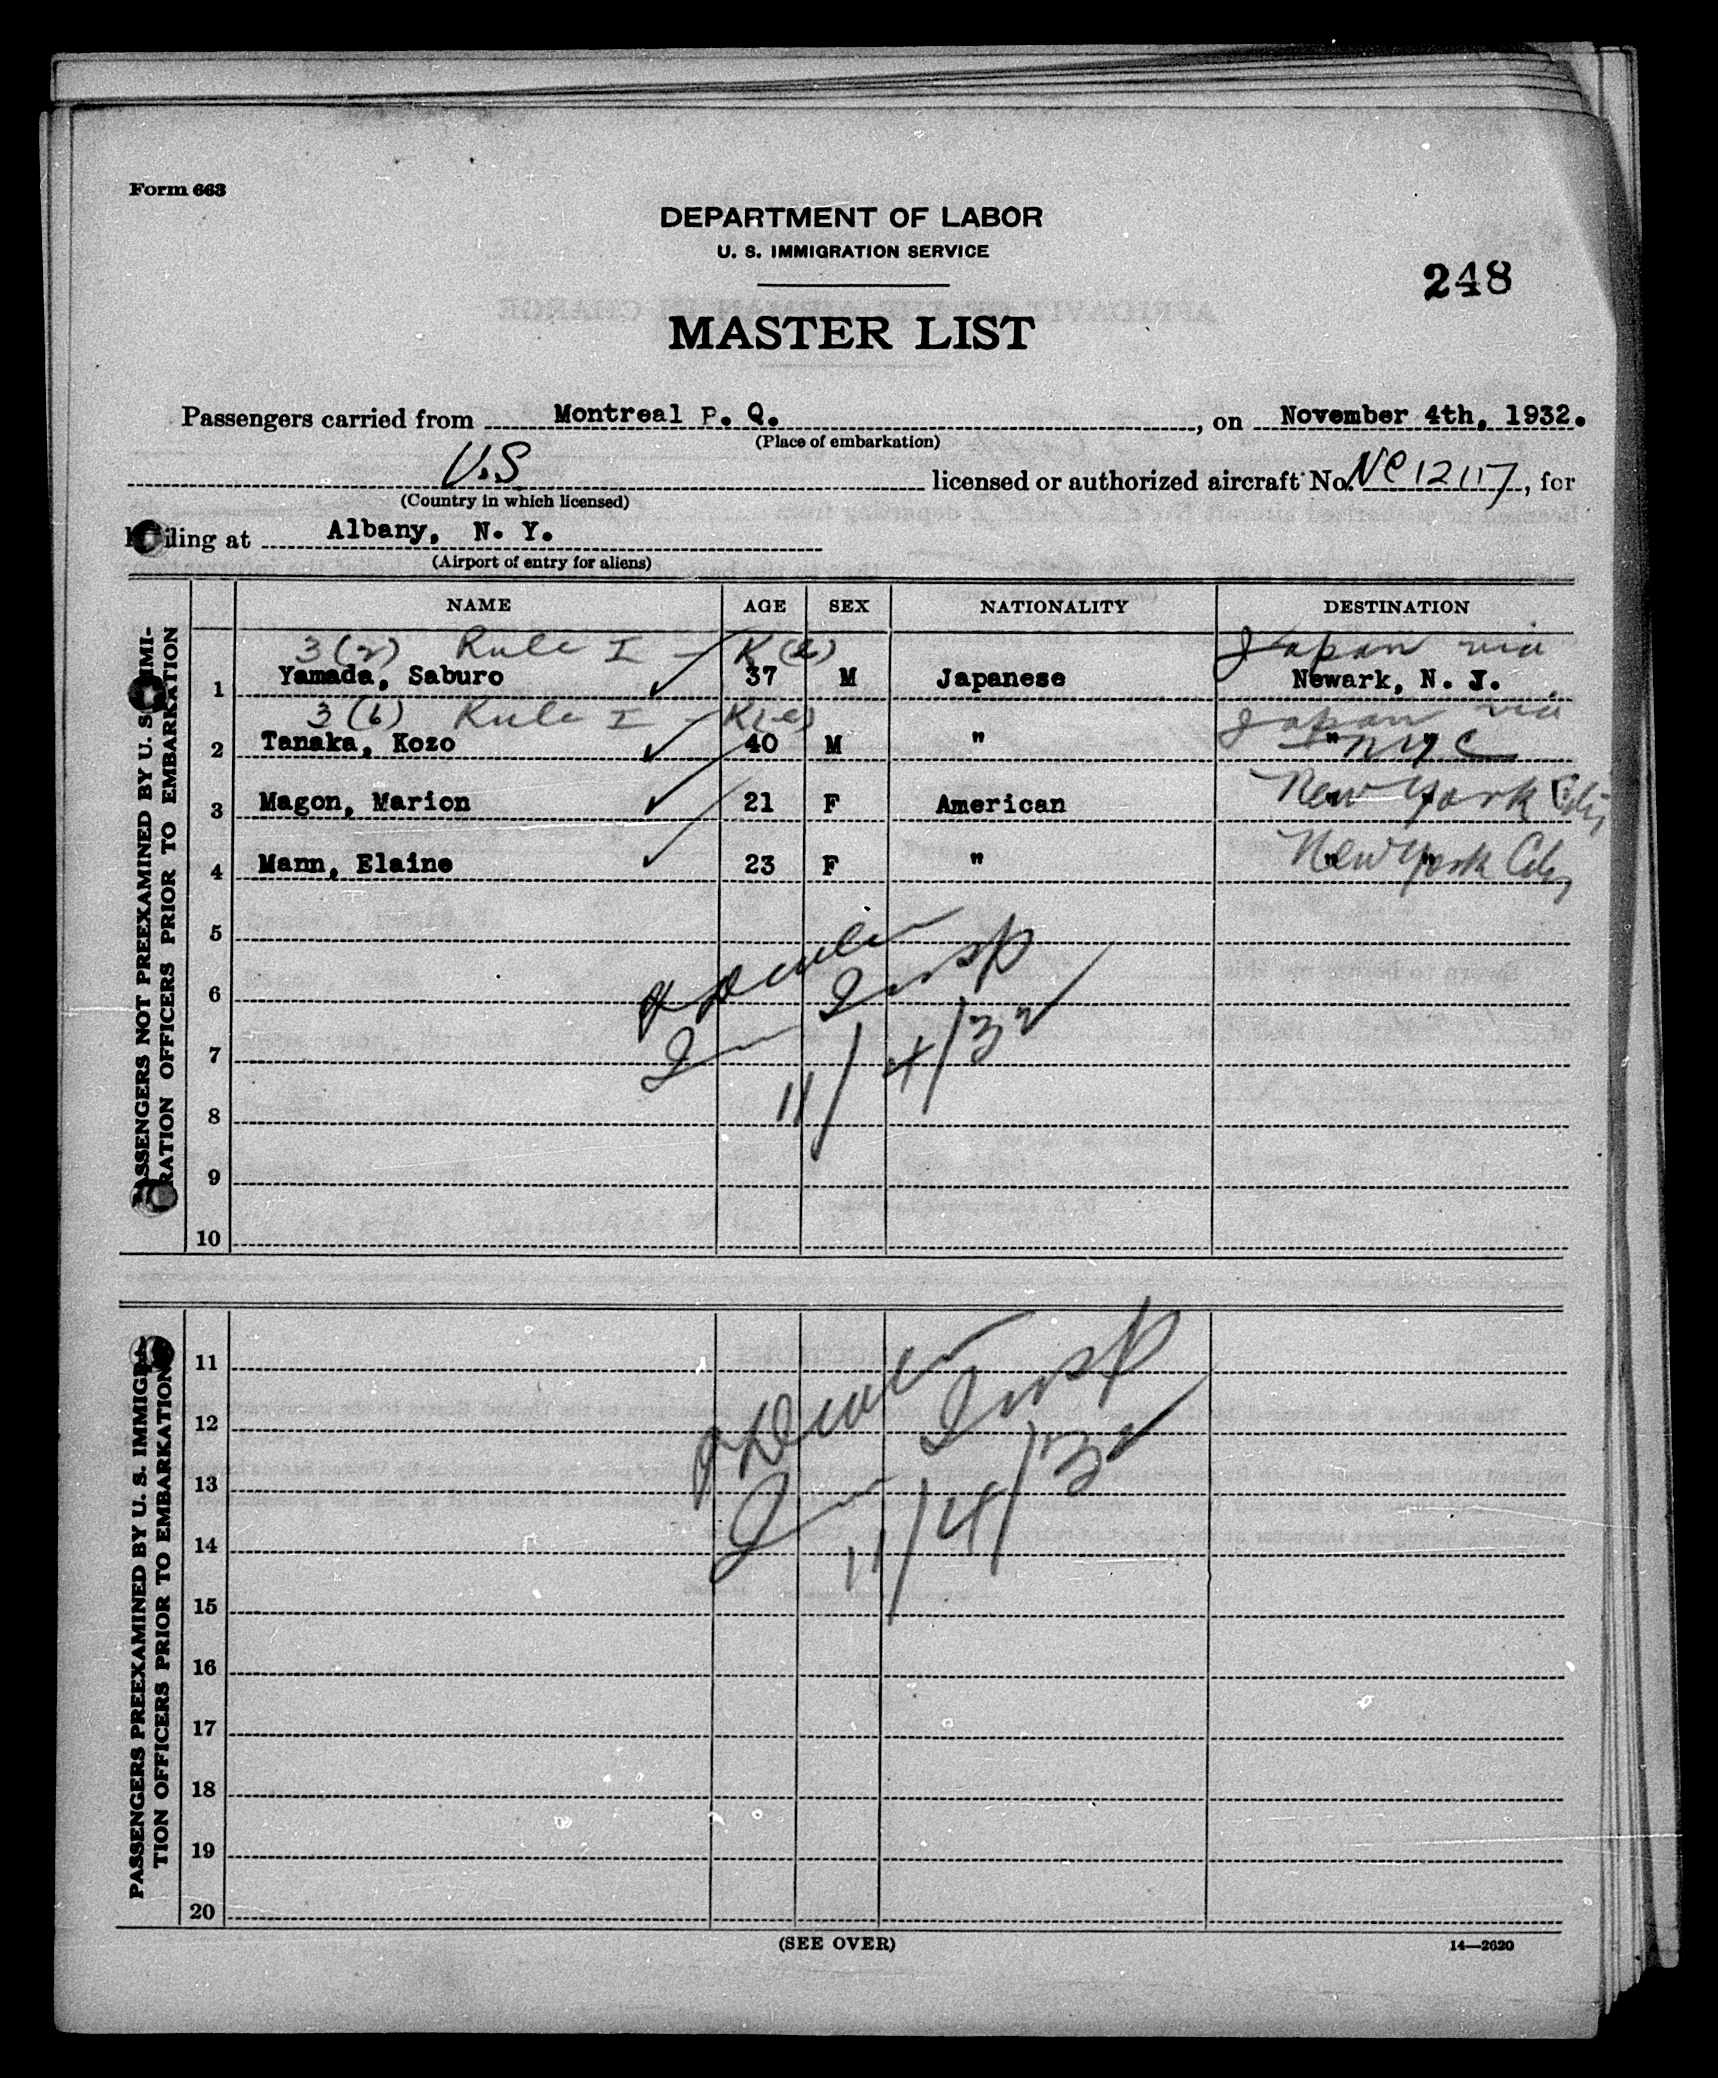 Form 663
DEPARTMENT OF LABOR
U. S. IMMIGRATION SERVICE
248
MASTER LIST
Passengers carried from Montreal P. Q. , on November 4th, 1932.
(Place of embarkation)
U.S licensed or authorized aircraft No. NC12117, for
(Country in which licensed)
iling at Albany, N. Y.
(Airport of entry for aliens)
NAME AGE SEX NATIONALITY DESTINATION
3(2) Rule I - K(e) Japan via
1 Yamada, Saburo 37 M Japanese Newark, N. J.
3(6) Rule I - K(e) Japan via
2 Tanaka, Kozo 40 M " " NYC "
3 Magon, Marion 21 F American " New York City "
4 Mann, Elaine 23 F " " New York City "
5
6 Insp
7 Imm
8 11/4/32
9
10
PASSENGERS NOT PREEXAMINED BY U. S. IMMI-
RATION OFFICERS PRIOR TO EMBARKATION
11
12 Insp
13 Imm
14 11/4/32
15
16
17
18
19
20
PASSENGERS PREEXAMINED BY U. S. IMMIGRA-
TION OFFICERS PRIOR TO EMBARKATION
(SEE OVER)
14—2620